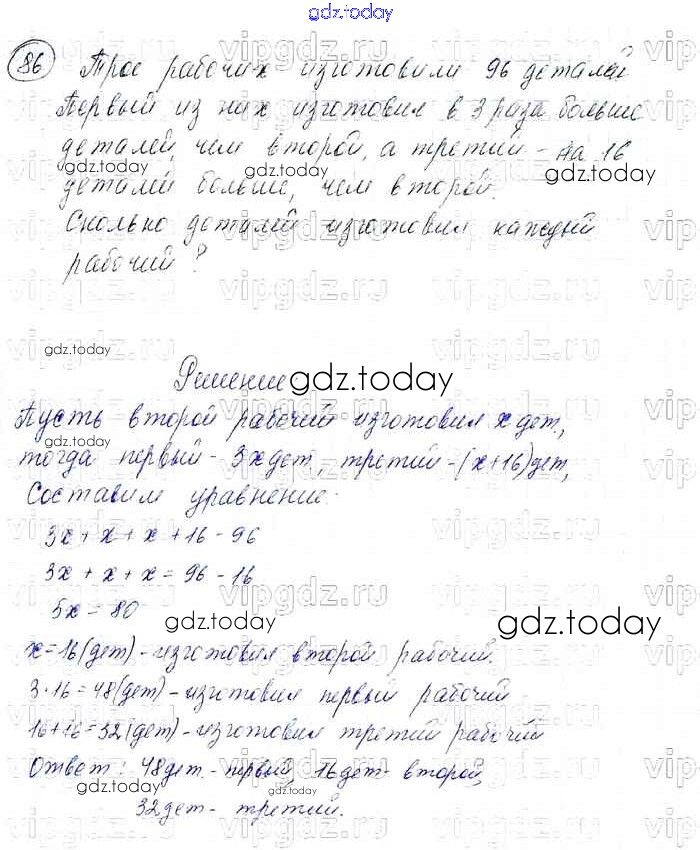 gdz.today
86 Трое рабочих изготовили 96 деталей.
Первый из них изготовил в 3 раза больше
деталей, чем второй, а третий - на 16
gdz.today gdz.today
деталей больше, чем второй.
Сколько деталей изготовил каждый
рабочий?
vipgdz.ru vipgdz.ru
gdz.today
Решение: gdz.today
Пусть второй рабочий изготовил x дет.,
тогда первый - 3x дет., третий - (x+16) дет,
Составим уравнение:
3x + x + x + 16 - 96
3x + x + x = 96 - 16
5x = 80
gdz.today gdz.today
x = 16 (дет) - изготовил второй рабочий.
3·16=48(дет) - изготовил первый рабочий
16+16=32(дет) - изготовил третий рабочий
Ответ: 48дет.- первый, 16дет- второй,
gdz.today gdz.today
32дет - третий.